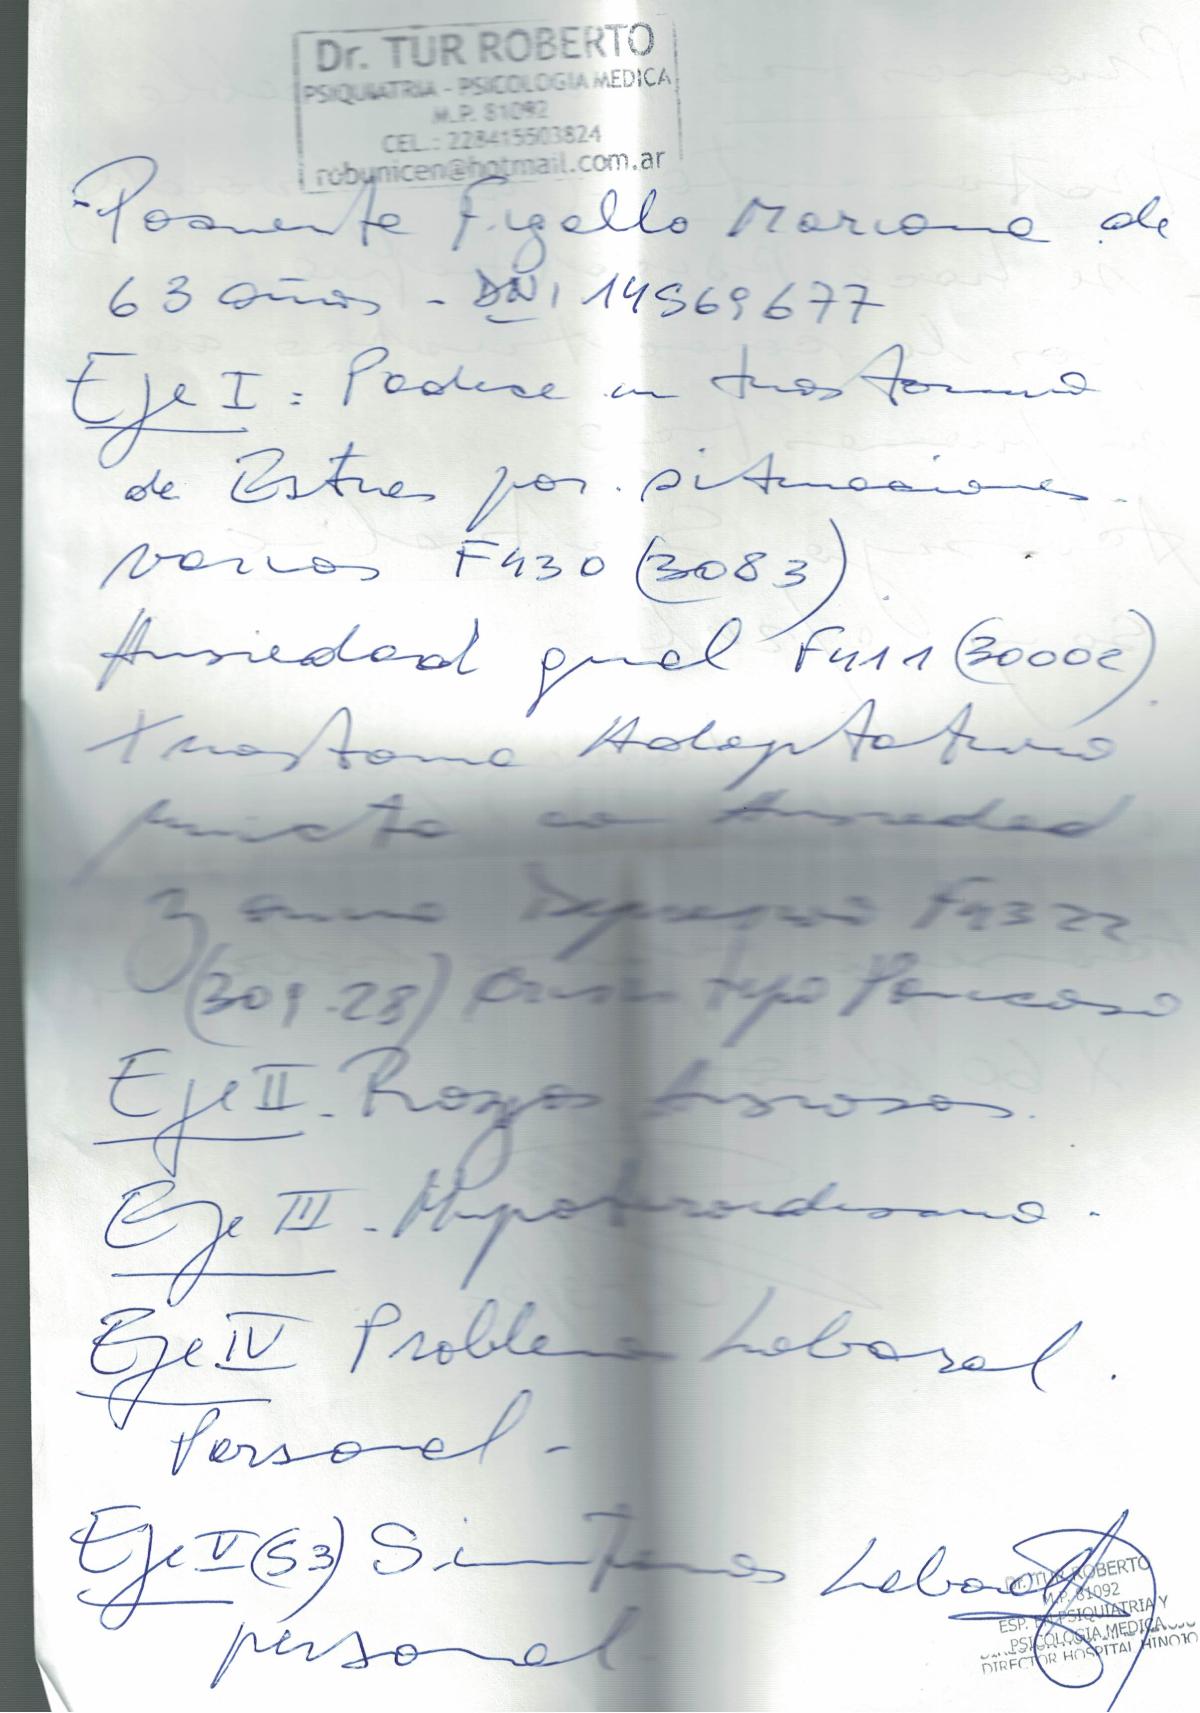 Dr. TUR ROBERTO
PSIQUIATRIA - PSICOLOGIA MEDICA
M.P. 81092
CEL.: 228415503824
robunicen@hotmail.com.ar
Paciente Figallo Mariana de
63 años - DNI 14569677
Eje I : Padece un trastorno
de Estres por situaciones
varias F430 (3083)
Ansiedad gral F411 (30002)
Trastorno Adaptativo
mixto con Ansiedad
y animo Depresivo F4322
(309-28) Crisis tipo Panicoso
Eje II - Rasgos Ansiosos.
Eje III - Hipotiroidismo.
Eje IV Problema Laboral.
Personal -
Eje V (53) Sintomas Laboral
personal
Dr. TUR ROBERTO
M.P. 81092
ESP. EN PSIQUIATRIA Y
PSICOLOGIA MEDICA
DIRECTOR HOSPITAL HINOJO